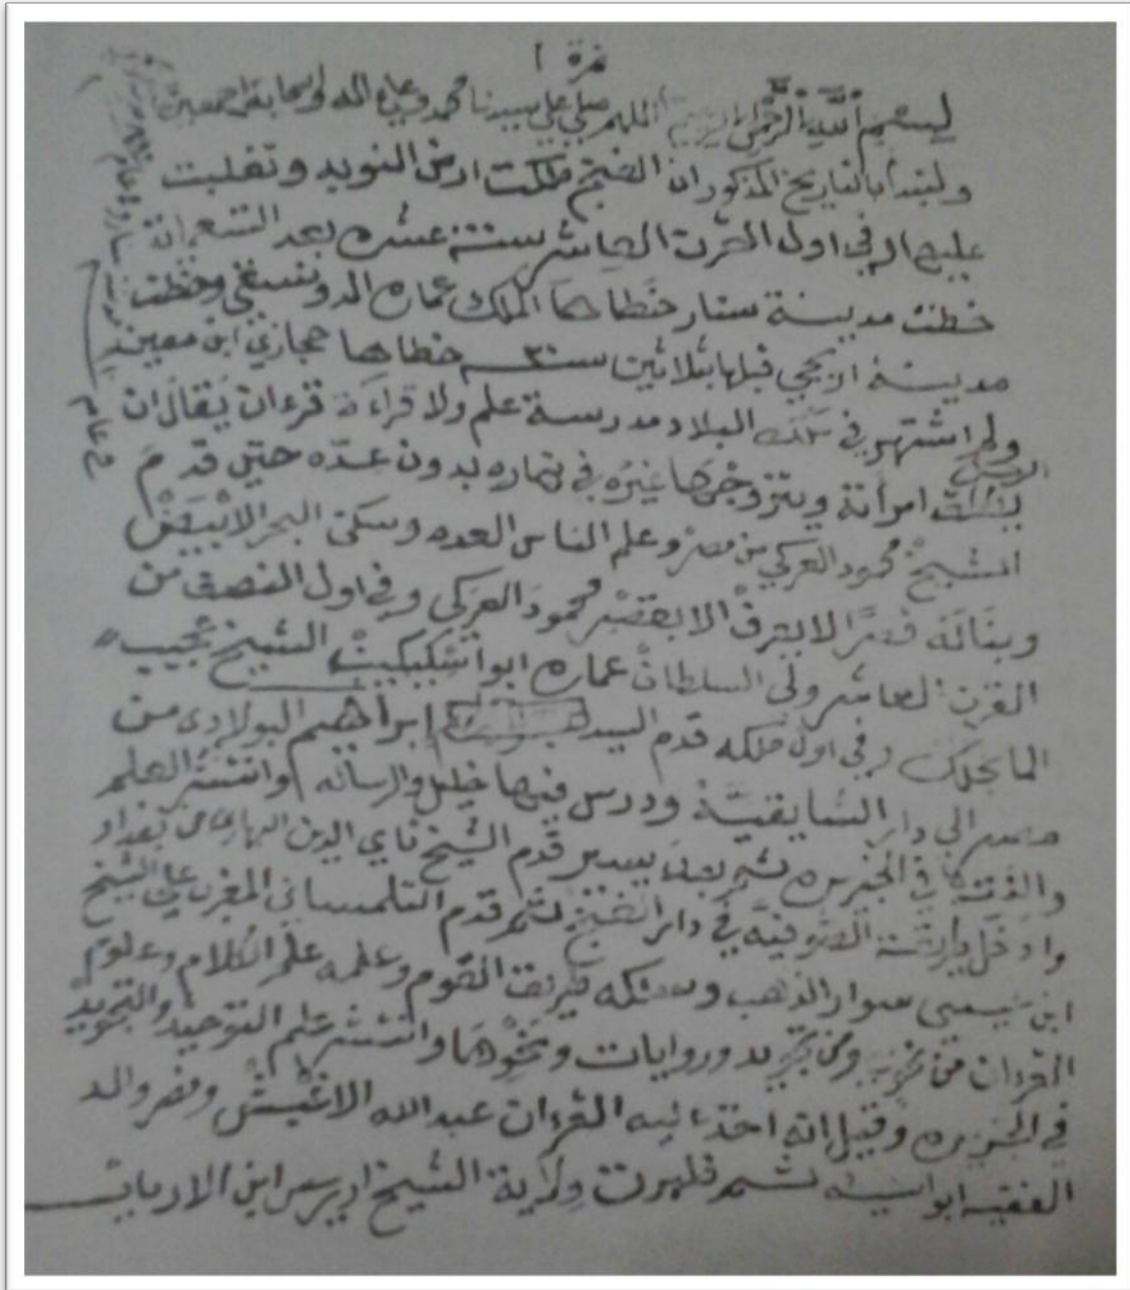 نمرة ١
بسم الله الرحمن الرحيم اللهم صلي علي سيدنا محمد وعلى اله واصحابه اجمعين
ولنبدأ بالتاريخ المذكور ان الفنج ملكت ارض النوبه وتغلبت
عليها في اول القرن العاشر سنة عشره بعد التسعماية
خطت مدينة سنار خطاها الملك عماره الدونسقي وخطت
مدينة اربجي قبلها بثلاثين سنه خطاها حجازي ابن معين
ولم اشتهر في تلك البلاد مدرسة علم ولا قراءة قرءان يقال ان
الرجل
يطلق امرأته ويتزوجها غيره في نهاره بدون عدّه حتى قدم
الشيخ محمود العركي من مصر وعلم الناس العده وسكن البحر الابيض
وبنا له قصرًا الا يعرف الا بقصر محمود العركي وفي اول النصف من
القرن العاشر ولى السلطان عماره ابو اسكيكين الشيخ عجيب
المانجلك وفي اول ملكه قدم السيد ابراهيم البولادي من
مصر الى دار الشايقية ودرس فيها خليل والرسالة وانتشر العلم
والفقه في الجزيره ثم بعد يسير قدم الشيخ تاج الدين البهاري من بغداد
وادخل طريقت الصوفية في دار الفنج ثم قدم التلمساني المغربي علي الشيخ
ابن عيسى سوار الذهب وسلكه طريق القوم وعلمه علم الكلام وعلوم
القرءان من تجويد وروايات ونحوها وانتشر علم التوحيد والتجويد
في الجزيره وقيل انه اخذ عليه القرءان عبد الله الاغبش ونصر والد
الفقيه ابو سنينه ثم ظهرت ولاية الشيخ ادريس ابن الارباب